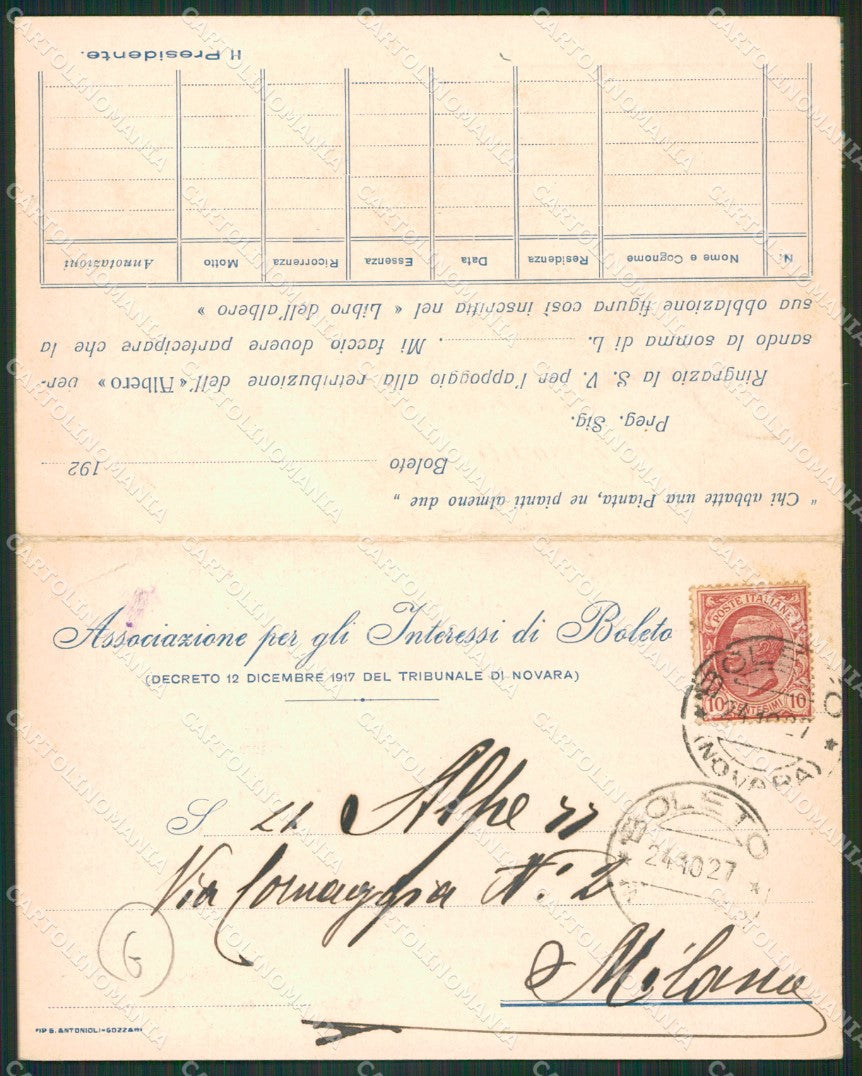 " Chi abbatte una Pianta, ne pianti almeno due "
Boleto 192
Preg. Sig.
Ringrazio la S. V. per l'appoggio alla retribuzione dell'« Albero » ver-
sando la somma di L. . Mi faccio dovere partecipare che la
sua obblazione figura così inscritta nel « Libro dell'albero »
N.i Nome e Cognome Residenza Data Essenza Ricorrenza Motto Annotazioni
Il Presidente.
Associazione per gli Interessi di Boleto
(DECRETO 12 DICEMBRE 1917 DEL TRIBUNALE DI NOVARA)
POSTE ITALIANE
10 CENTESIMI 10
BOLETO
24.10.27
(NOVARA)
S " Alpe "
BOLETO
24.10.27
Via Cornaggia N. 2
Milano
G
TIP. G. ANTONIOLI-GOZZANO
CARTOLINOMANIA